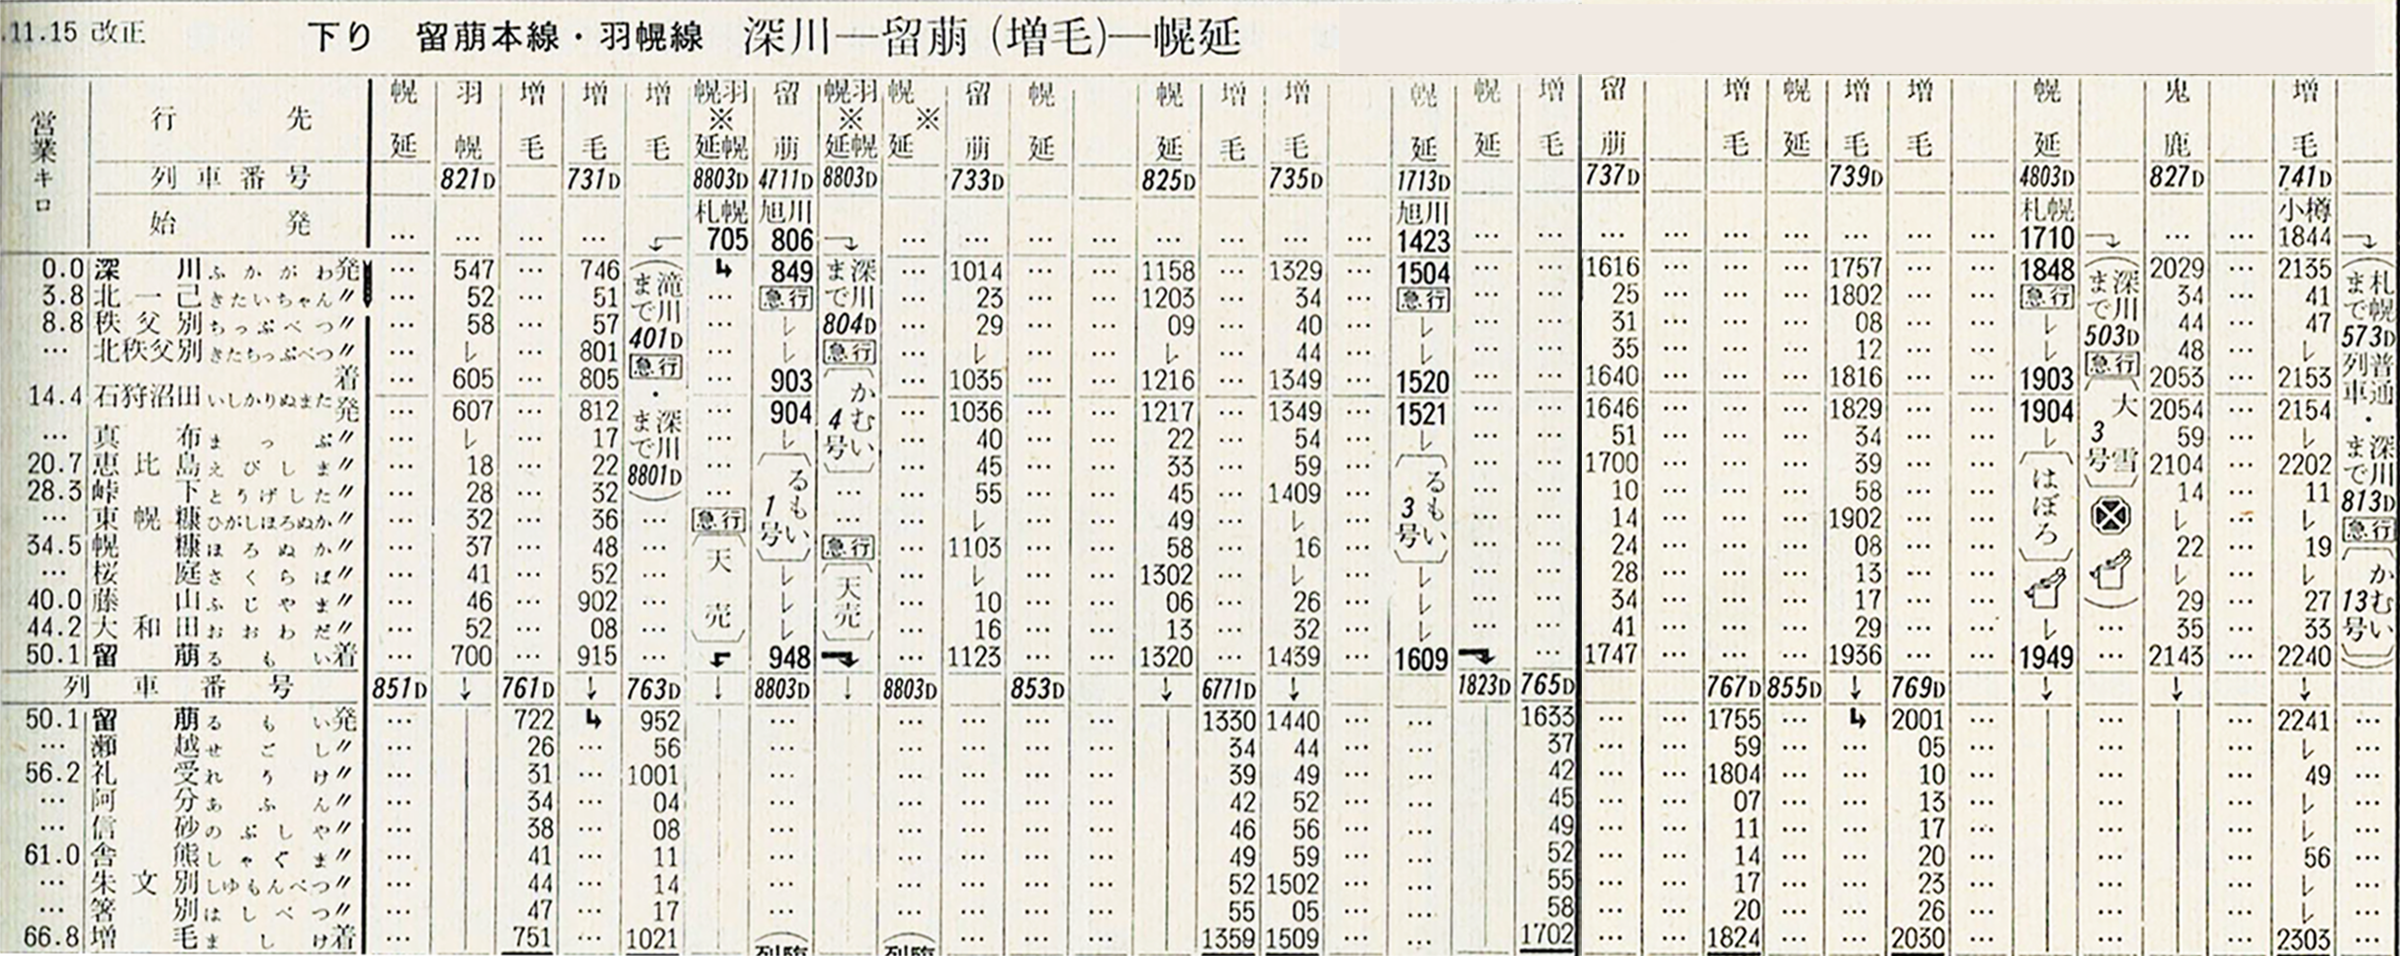 .11.15 改正 下り 留萠本線・羽幌線 深川―留萠(増毛)―幌延
営業キロ 行先 幌延 羽幌 増毛 増毛 増毛 幌延※羽幌 留萠 幌延※羽幌 幌延※ 留萠 幌延 幌延 増毛 増毛 幌延 幌延 増毛 留萠 増毛 幌延 増毛 増毛 幌延 鬼鹿 増毛
列車番号 821D 731D 8803D 4711D 8803D 733D 825D 735D 1713D 737D 739D 4803D 827D 741D
始発 … … … … 札幌705 旭川806 … … … … … … … … 旭川1423 … … … … … … … … 札幌1710 … … 小樽1844
0.0 深川 ふかがわ 発 … 547 746 849 … 1014 … … 1158 … 1329 … 1504 … … 1616 … … … 1757 … … 1848 2029 … 2135
3.8 北一己 きたいちゃん 〃 … 52 … 51 … 急行 … 23 … … 1203 … 34 … 急行 … … 25 … … … 1802 … … 急行 34 … 41
8.8 秩父別 ちっぷべつ 〃 … 58 … 57 … レ … 29 … … 09 … 40 … レ … … 31 … … … 08 … … レ 44 … 47
… 北秩父別 きたちっぷべつ 〃 … レ … 801 … レ … レ … … レ … 44 … レ … … 35 … … … 12 … … レ 48 … レ
14.4 石狩沼田 いしかりぬまた 着 … 605 … 805 … 903 … 1035 … … 1216 … 1349 … 1520 … … 1640 … … … 1816 … … 1903 2053 … 2153
発 … 607 … 812 … 904 … 1036 … … 1217 … 1349 … 1521 … … 1646 … … … 1829 … … 1904 2054 … 2154
… 真布 まっぷ 〃 … レ … 17 … レ … 40 … … 22 … 54 … レ … … 51 … … … 34 … … レ 59 … レ
20.7 恵比島 えびしま 〃 … 18 … 22 … … 45 … … 33 … 59 … … … 1700 … … … 39 … … 2104 … 2202
28.3 峠下 とうげした 〃 … 28 … 32 … … … 55 … … 45 … 1409 … … … 10 … … … 58 … … 14 … 11
… 東幌糠 ひがしほろぬか 〃 … 32 … 36 … 急行 … … レ … … 49 … レ … … … 14 … … … 1902 … … レ … レ
34.5 幌糠 ほろぬか 〃 … 37 … 48 … 急行 … 1103 … … 58 … 16 … … … 24 … … … 08 … … 22 … 19
… 桜庭 さくらば 〃 … 41 … 52 … レ … レ … … 1302 … レ … レ … … 28 … … … 13 … … レ … レ
40.0 藤山 ふじやま 〃 … 46 … 902 … レ … 10 … … 06 … 26 … レ … … 34 … … … 17 … … 29 … 27
44.2 大和田 おおわだ 〃 … 52 … 08 … レ … 16 … … 13 … 32 … レ … … 41 … … … 29 … … レ … 35 … 33
50.1 留萠 るもい 着 … 700 … 915 … 948 … 1123 … … 1320 … 1439 … 1609 … 1747 … … … 1936 … … 1949 … 2143 … 2240
(滝川まで401D急行・深川まで8801D)
〔天売〕
〔るもい1号〕
深川まで804D急行〔かむい4号〕
〔天売〕
〔るもい3号〕
〔はぼろ〕
(深川まで503D急行〔大雪3号〕)
(札幌まで573D普通列車・深川まで813D急行〔かむい13号〕)
列車番号 851D ↓ 761D ↓ 763D ↓ 8803D ↓ 8803D 853D ↓ 6771D ↓ 1823D 765D 767D 855D ↓ 769D ↓ ↓ ↓
50.1 留萠 るもい 発 … 722 952 … … … … 1330 1440 … … 1633 … … 1755 … 2001 … … … 2241 …
… 瀬越 せごし 〃 … 26 … 56 … … … … 34 44 … … 37 … … 59 … … 05 … … … レ …
56.2 礼受 れうけ 〃 … 31 … 1001 … … … … 39 49 … … 42 … … 1804 … … 10 … … … 49 …
… 阿分 あふん 〃 … 34 … 04 … … … … 42 52 … … 45 … … 07 … … 13 … … … レ …
… 信砂 のぶしゃ 〃 … 38 … 08 … … … … 46 56 … … 49 … … 11 … … 17 … … … レ …
61.0 舎熊 しゃぐま 〃 … 41 … 11 … … … … 49 59 … … 52 … … 14 … … 20 … … … 56 …
… 朱文別 しゆもんべつ 〃 … 44 … 14 … … … … 52 1502 … … 55 … … 17 … … 23 … … … レ …
… 箸別 はしべつ 〃 … 47 … 17 … … … … 55 05 … … 58 … … 20 … … 26 … … … レ …
66.8 増毛 ましけ 着 … 751 … 1021 … … … 1359 1509 … … 1702 … … 1824 … … 2030 … … … 2303 …